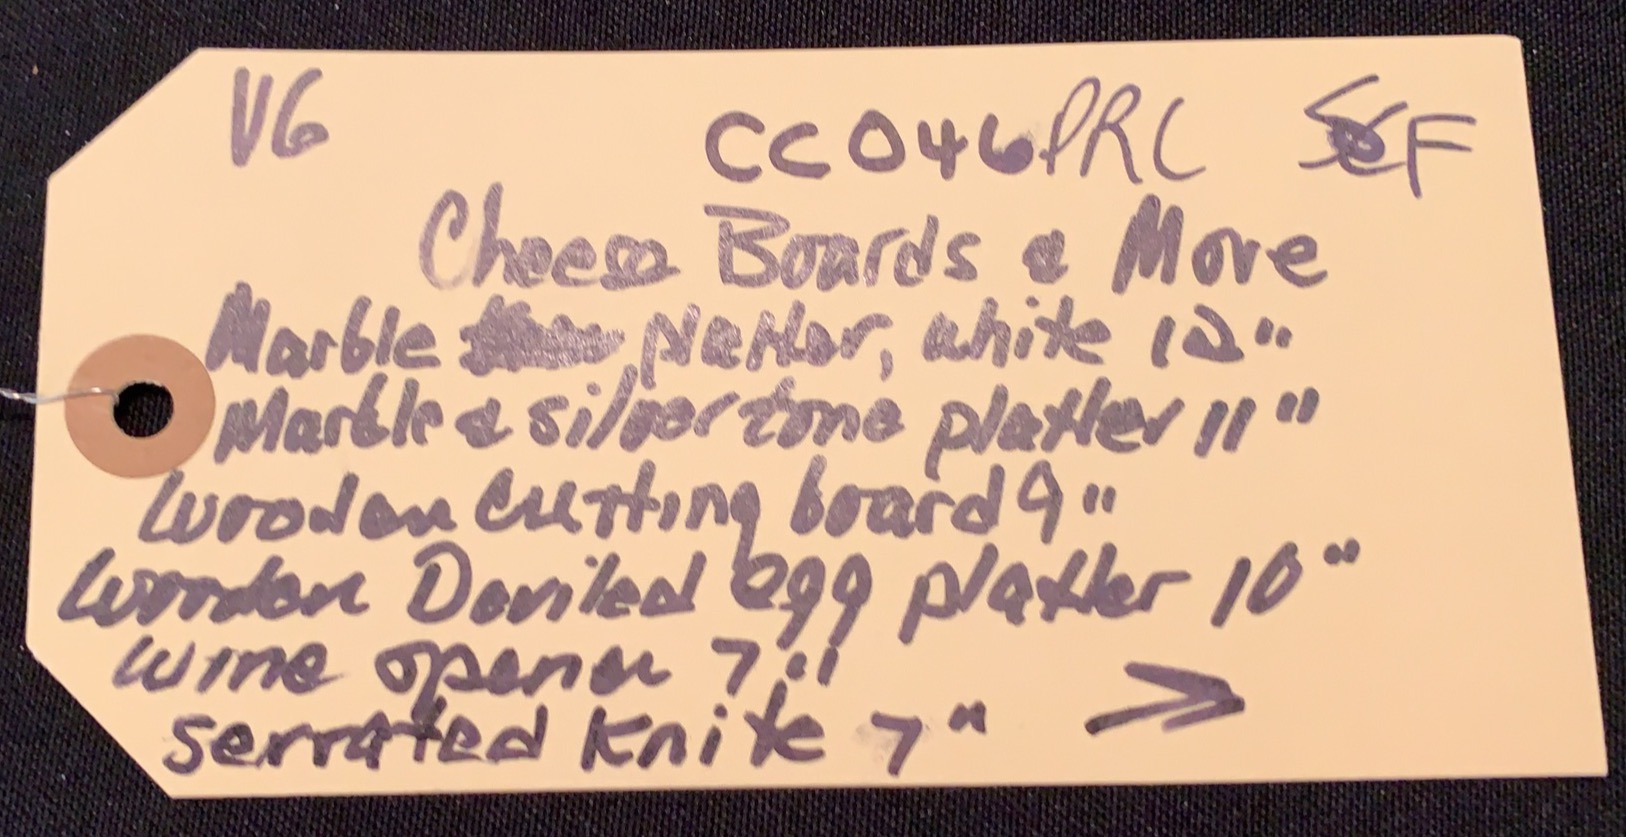 VG CC046PRC F
Cheese Boards & More
Marble platter, white 12"
Marble & silver tone platter 11"
Wooden cutting board 9"
Wooden Deviled egg platter 10"
wine opener 7"
serrated Knife 7" >